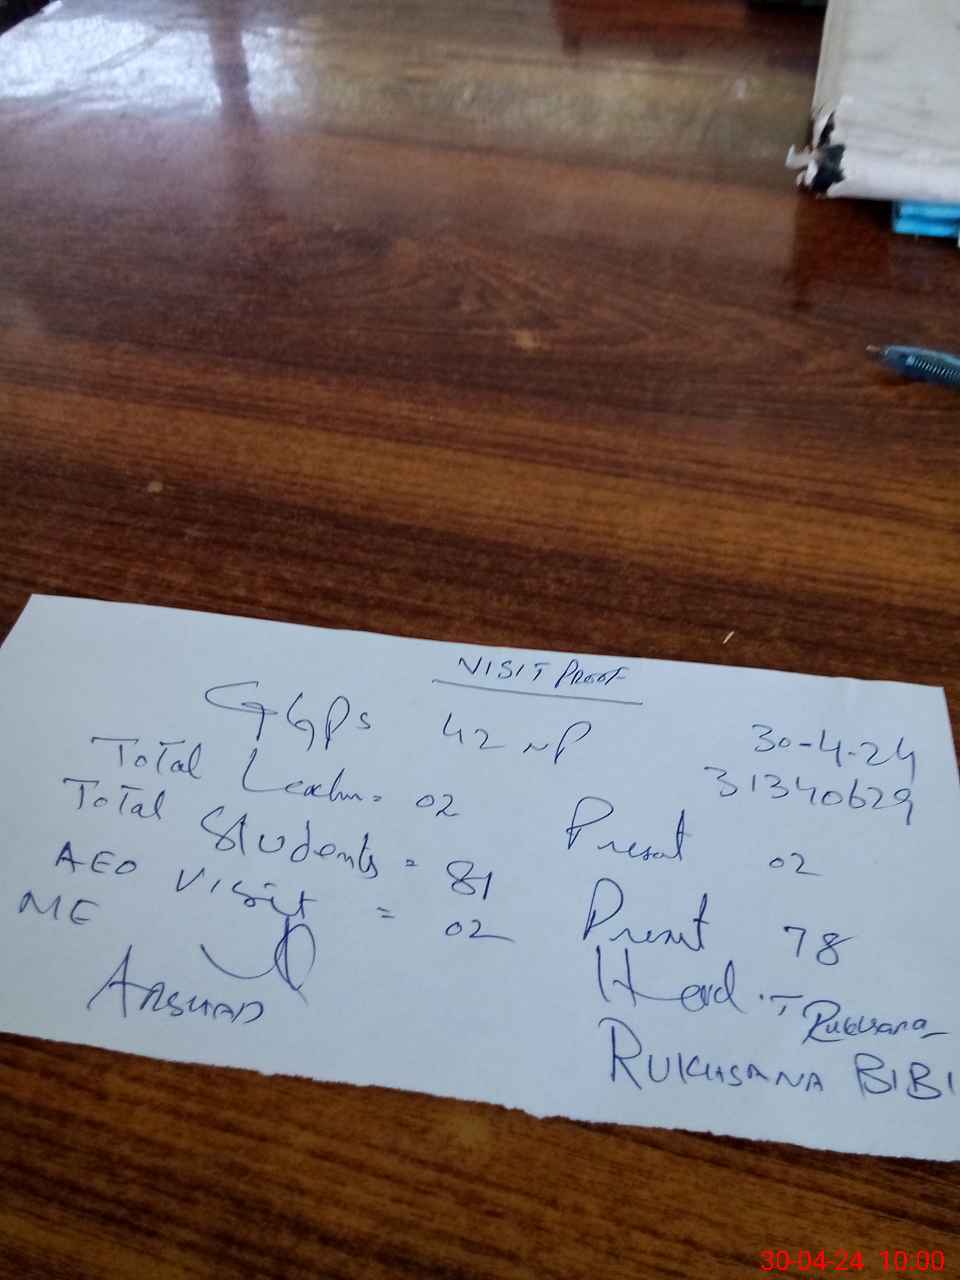 VISIT PROOF
GGPS 42 NP 30-4-24
31340629
Total Teacher = 02 Present 02
Total Students = 81 Present 78
AEO Visit = 02 Head.T Rukhsana
ME
ARSHAD RUKHSANA BIBI
30-04-24 10:00